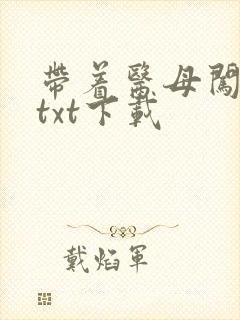 带着医母闖
txt下載
戴焰軍